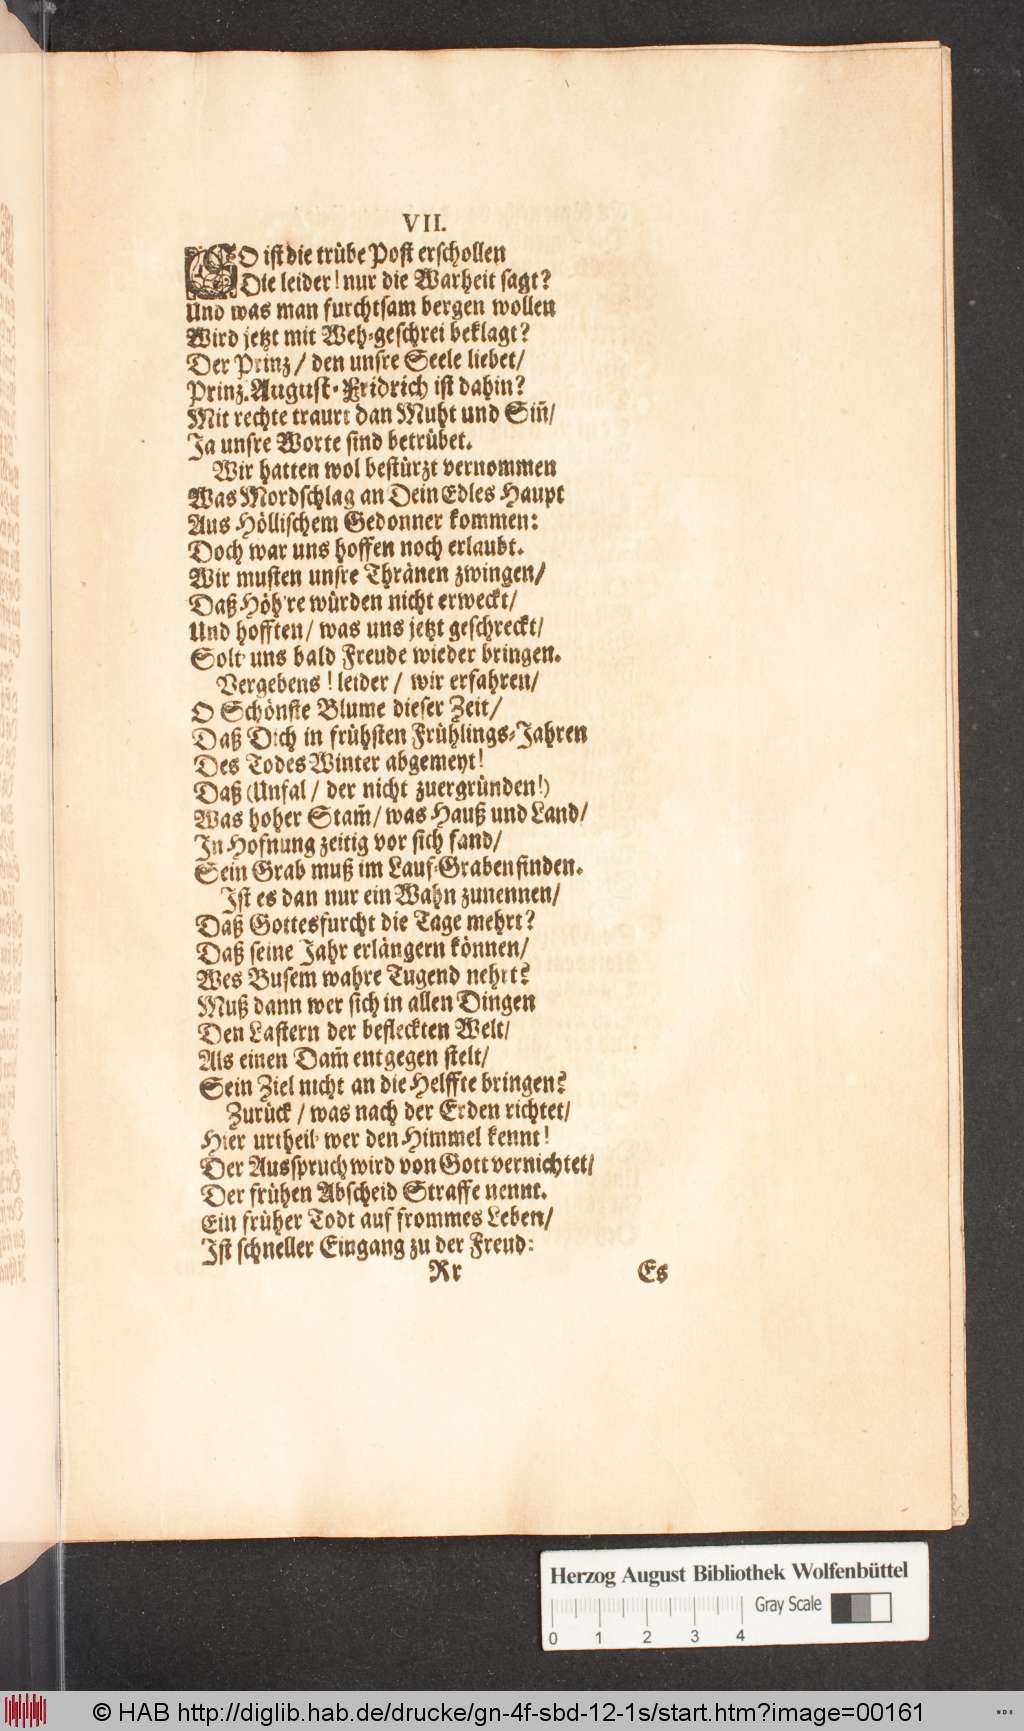 VII.
SO ist die trübe Post erschollen
Die leider! nur die Warheit sagt?
Und was man furchtsam bergen wollen
Wird jetzt mit Weh-geschrei beklagt?
Der Prinz / den unsre Seele liebet/
Prinz August-Fridrich ist dahin?
Mit rechte traurt dan Muht und Siñ/
Ja unsre Worte sind betrübet.
Wir hatten wol bestürzt vernommen
Was Mordschlag an Dein Edles Haupt
Aus Höllischem Gedonner kommen:
Doch war uns hoffen noch erlaubt.
Wir musten unsre Thränen zwingen/
Daß Höh're würden nicht erweckt/
Und hofften / was uns jetzt geschreckt/
Solt' uns bald Freude wieder bringen.
Vergebens! leider / wir erfahren/
O Schönste Blume dieser Zeit/
Daß Dich in frühsten Frühlings-Jahren
Des Todes Winter abgemeyt!
Daß (Unfal / der nicht zuergründen!)
Was hoher Stam̃/ was Hauß und Land/
In Hofnung zeitig vor sich fand/
Sein Grab muß im Lauf-Graben finden.
Ist es dan nur ein Wahn zunennen/
Daß Gottesfurcht die Tage mehrt?
Daß seine Jahr erlängern können/
Wes Busem wahre Tugend nehrt?
Muß dann wer sich in allen Dingen
Den Lastern der befleckten Welt/
Als einen Dam̃ entgegen stelt/
Sein Ziel nicht an die Helffte bringen?
Zurück / was nach der Erden richtet/
Hier urtheil' wer den Himmel kennt!
Der Ausspruch wird von Gott vernichtet/
Der frühen Abscheid Straffe nennt.
Ein früher Todt auf frommes Leben/
Ist schneller Eingang zu der Freud:
Rr Es
Herzog August Bibliothek Wolfenbüttel
Gray Scale
0 1 2 3 4
© HAB http://diglib.hab.de/drucke/gn-4f-sbd-12-1s/start.htm?image=00161